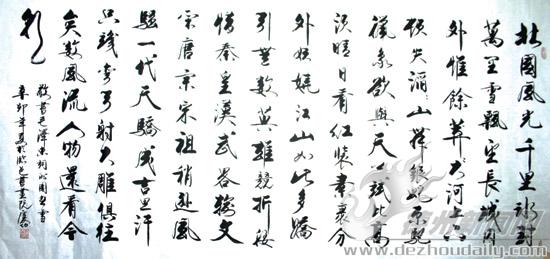 北國風光千里冰封
萬里雪飄望長城內
外惟餘莽莽大河上下
頓失滔滔山舞銀蛇原馳
蠟象欲與天公試比高
須晴日看紅裝素裹分
外妖嬈江山如此多嬌
引無數英雄競折腰
惜秦皇漢武略輸文
采唐宗宋祖稍遜風
騷一代天驕成吉思汗
只識彎弓射大雕俱往
矣數風流人物還看今
朝
敬書毛澤東詞沁園春雪
辛卯年夏於
www.dezhoudaily.com